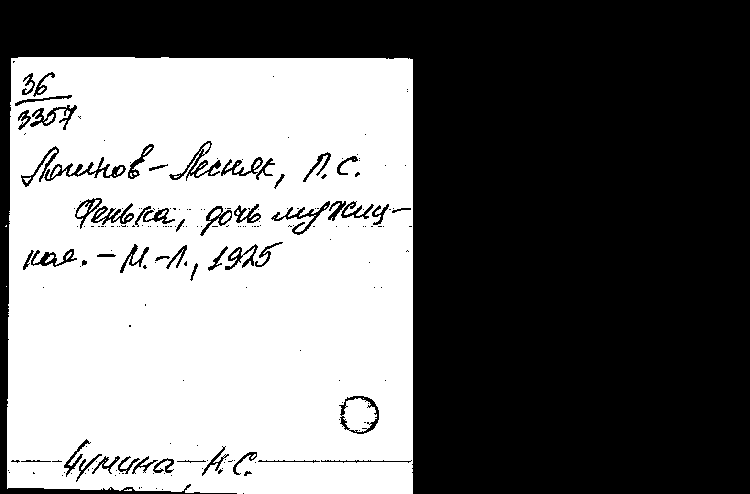 36
3357
Логинов-Лесняк, П.С.
Фенька, дочь мужиц-
кая. - М.-Л., 1925
Чумина Н.С.